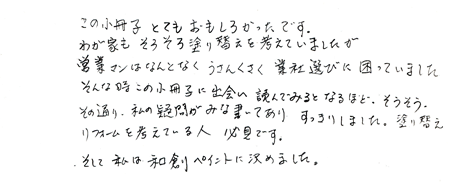 この小冊子 とてもおもしろかったです。
わが家も そろそろ塗り替えを考えていましたが
営業マンはなんとなく うさんくさく 業社選びに 困っていました
そんな時 この小冊子に出会い 読んでみるとなるほど、そうそう、
その通り、私の疑問がみな書いてあり すっきりしました。塗り替え
リフォームを考えている人 必見です。
そして 私は 和創ペイントに決めました。